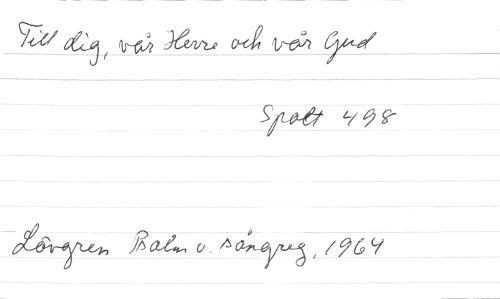 Till dig, vår Herre och vår Gud
Spolt 498
Lövgren Psalm o. sångreg, 1964